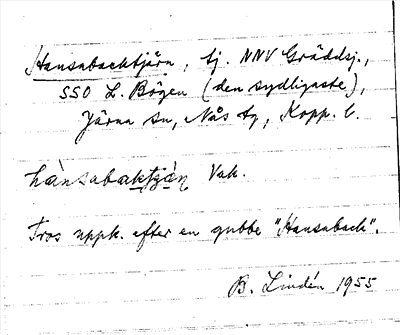 Hansabacktjärn, tj. NNV Gräddsj.,
SSO L. Bögen (den sydligaste),
Järna sn, Nås tg, Kopp. l.
hànsabaktjä̀ṇ Vak.
Tros uppk. efter en gubbe "Hansaback".
B. Lindén 1955